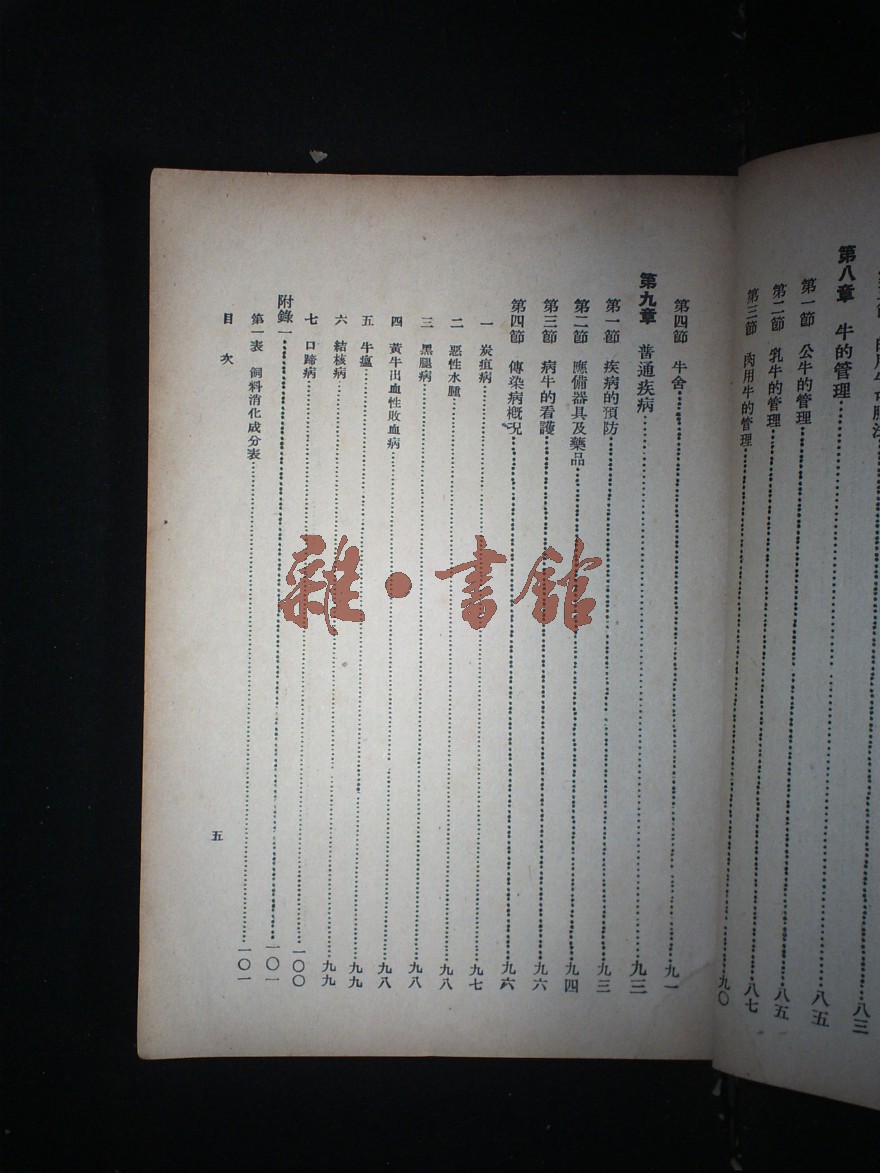 八三
第八章 牛的管理……八五
第一節 公牛的管理……八五
第二節 乳牛的管理……八七
第三節 肉用牛的管理……九〇
第四節 牛舍……九一
第九章 普通疾病……九三
第一節 疾病的預防……九三
第二節 應備器具及藥品……九四
第三節 病牛的看護……九六
第四節 傳染病概況……九六
一 炭疽病……九七
二 惡性水腫……九八
三 黑腿病……九八
四 黃牛出血性敗血病……九八
五 牛瘟……九九
六 結核病……九九
七 口蹄病……一〇〇
附錄一……一〇一
第一表 飼料消化成分表……一〇一
目次
五
雜·書館